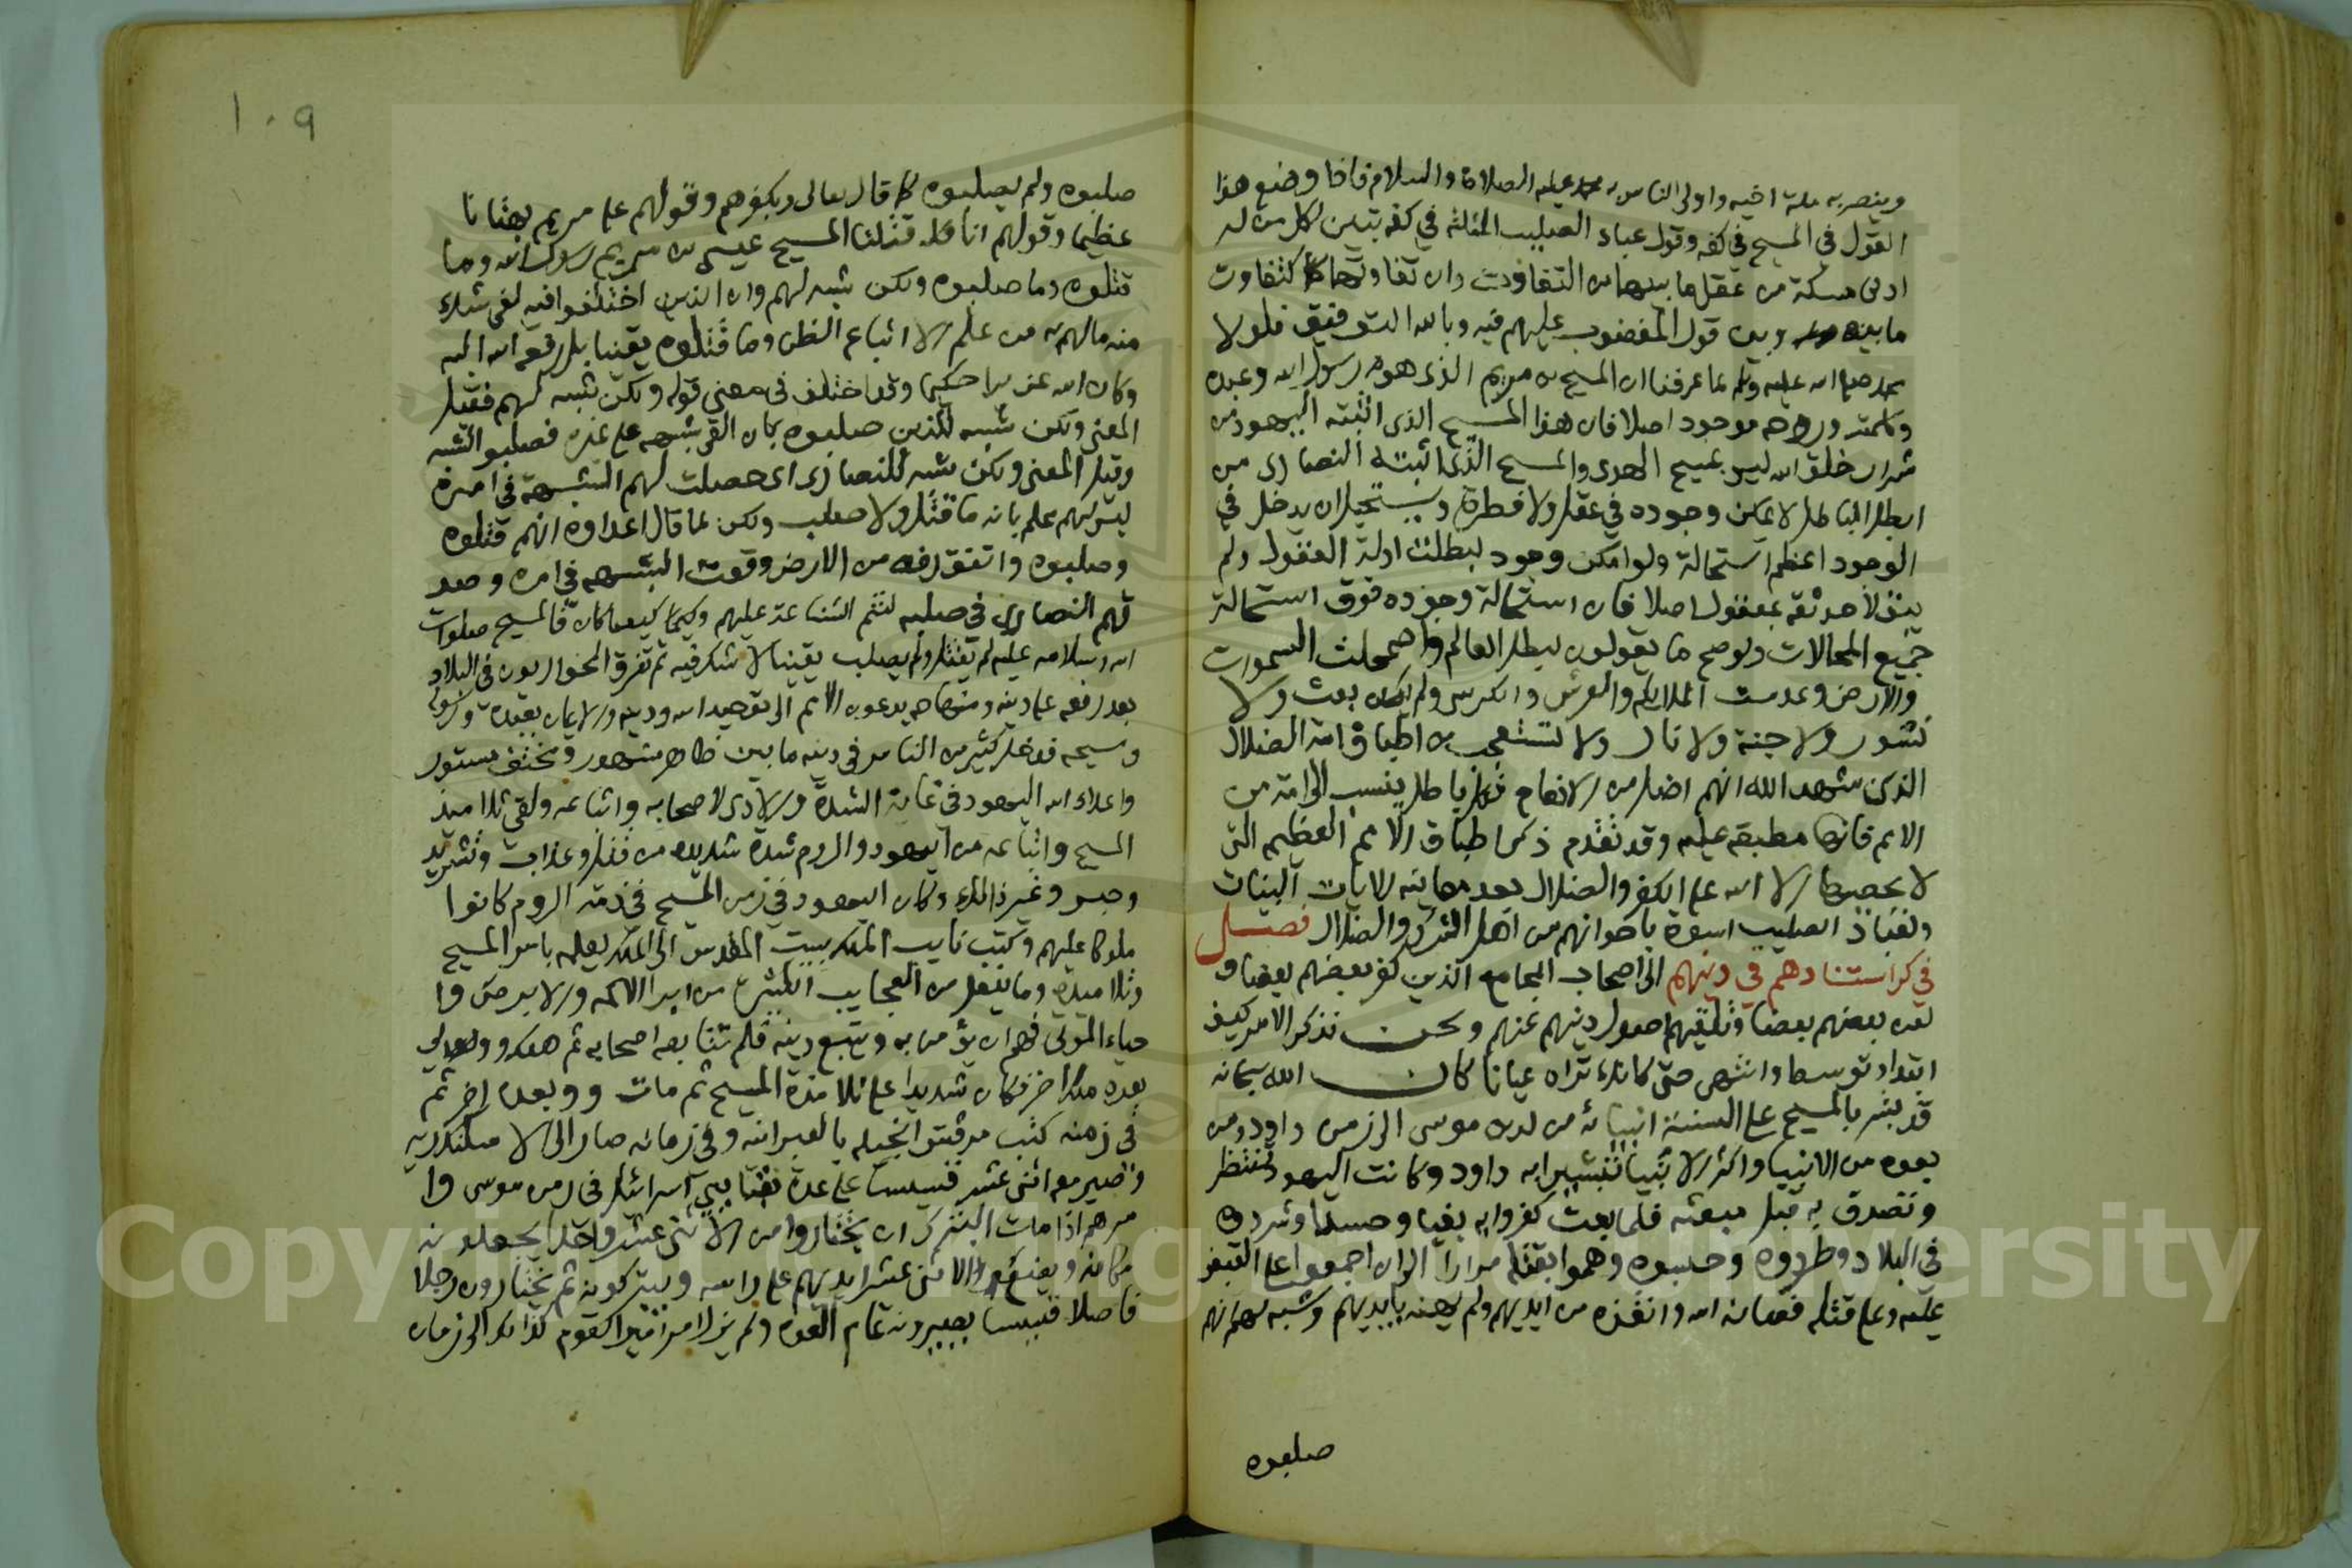 وينصر به ملة اخيه واولى الناس به محمد عليه الصلاة والسلام فاذا وضع هذا
القول في المسيح في كفه وقول عباد الصليب المثلثه في كفه تبين لكل من له
ادنى مسكة من عقل ما بينهما من التفاوت وان تفاوتهما كتفاوت
ما بينه وبين قول المغضوب عليهم فيه وبالله التوفيق فلولا
محمد صلى الله عليه وسلم لما عرفنا ان المسيح بن مريم الذي هو رسول الله وعبده
وكلمته وروحه موجود اصلا فان هذا المسيح الذي اثبته اليهود من
شرار خلق الله ليس بمسيح الهدى والمسيح الذي اثبته النصارى من
ابطل الباطل لا يمكن وجوده في عقل ولا فطرة ويستحيل ان يدخل في
الوجود اعظم استحالة ولو امكن وجود لبطلت ادلة العقول ولم
يبق لاحد ثقه بمعقول اصلا فان استحالة وجوده فوق استحالة
جميع المحالات ولو صح ما يقولون لبطل العالم واضمحلت السموات
والارض وعدمت الملائكه والعرش والكرسي ولم يكن بعث ولا
نشور ولا جنة ولا نار ولا تستعجب من اطباق امة الضلال
الذين شهد الله انهم اضل من الانعام فكل باطل ينسب الى امة من
الامم فانها مطبقه عليه وقد تقدم ذكر اطباق الامم العظيمه التي
لا يحصيها الا الله على الكفر والضلال بعد معاينه الايات البينات
ولعباد الصليب اسوة باخوانهم من اهل الشرك والضلال فصل
في كر استنادهم في دينهم الى اصحاب المجامع الذين كفر بعضهم بعضا و
لعن بعضهم بعضا وتلقيهم اصول دينهم عنهم ونحن نذكر الامر كيف
ابتدا وتوسط وانتهى حتى كانك تراه عيانا كان الله سبحانه
قد بشر بالمسيح على السنة انبيائه من لدن موسى الى زمن داود ومن
بعده من الانبيا واكثر الانبيا تبشيرا به داود وكانت اليهود تنتظره
وتصدق به قبل مبعثه فلما بعث كفروا به بغيا وحسدا وشردوه
في البلاد وطردوه وحبسوه وهموا بقتله مرارا الى ان اجمعوا على القبض
عليه وعلى قتله فصانه الله وانقذه من ايديهم ولم يهنه بايديهم وشبه لهم انهم
صلبوه
١٠٩
صلبوه ولم يصلبوه كما قال تعالى وبكفرهم وقولهم على مريم بهتانا
عظيما وقولهم انا قتلنا المسيح عيسى بن مريم رسول الله وما
قتلوه وما صلبوه ولكن شبه لهم وان الذين اختلفوا فيه لفي شك
منه ما لهم به من علم الا اتباع الظن وما قتلوه يقينا بل رفعه الله اليه
وكان الله عزيزا حكيما وقد اختلف في معنى قوله ولكن شبه لهم فقيل
المعنى ولكن شبه للذين صلبوه بان القي شبهه على غيره فصلبوا الشبه
وقيل المعنى ولكن شبه للنصارى اي حصلت لهم الشبهة في امره
ليس لهم علم بانه ما قتل ولا صلب ولكن لما قال اعداوه انهم قتلوه
وصلبوه واتفق رفعه من الارض وقعت الشبهه في امره وصد
قهم النصارى في صلبه لتتم الشناعة عليهم وكيفما كان فالمسيح صلوات
الله وسلامه عليه لم يقتل ولم يصلب يقينا لا شك فيه ثم تفرق الحواريون في البلاد
بعد رفعه على دينه ومنهاجه يدعون الامم الى توحيد الله ودينه والايمان بعبده ورسوله
ومسيحه فدخل كثير من الناس في دينه ما بين ظاهر مشهور ومختف مستور
واعداء الله اليهود في غاية الشدة والاذى لاصحابه واتباعه ولقي تلاميذ
المسيح واتباعه من اليهود والروم شدة شديده من قتل وعذاب وتشريد
وحبس وغير ذلك وكان اليهود في زمن المسيح في ذمة الروم كانوا
ملوكا عليهم وكتب نايب الملك ببيت المقدس الى الملك يعلمه بامر المسيح
وتلاميذه وما يفعل من العجايب الكثيره من ابرا الاكمه والابرص وا
حياء الموتى فهم ان يؤمن به ويتبع دينه فلم يتابعه اصحابه ثم هلك وولي
بعده ملك اخر فكان شديدا على تلامذة المسيح ثم مات وولى بعده اخر ثم
في زمنه كتب مرقس انجيله بالعبرانيه وفي زمانه صار الى الاسكندريه
وصير معه اثني عشر قسيسا على عدة نقبا بني اسرائيل في زمن موسى وا
مرهم اذا مات البترك ان يختاروا من الاثنى عشر واحدا يجعلونه
مكانه ويضع الاثنى عشر ايديهم على راسه ويبركونه ثم يختارون رجلا
فاضلا قسيسا يصيرونه تمام العدة ولم يزل امر القوم كذلك الى زمان